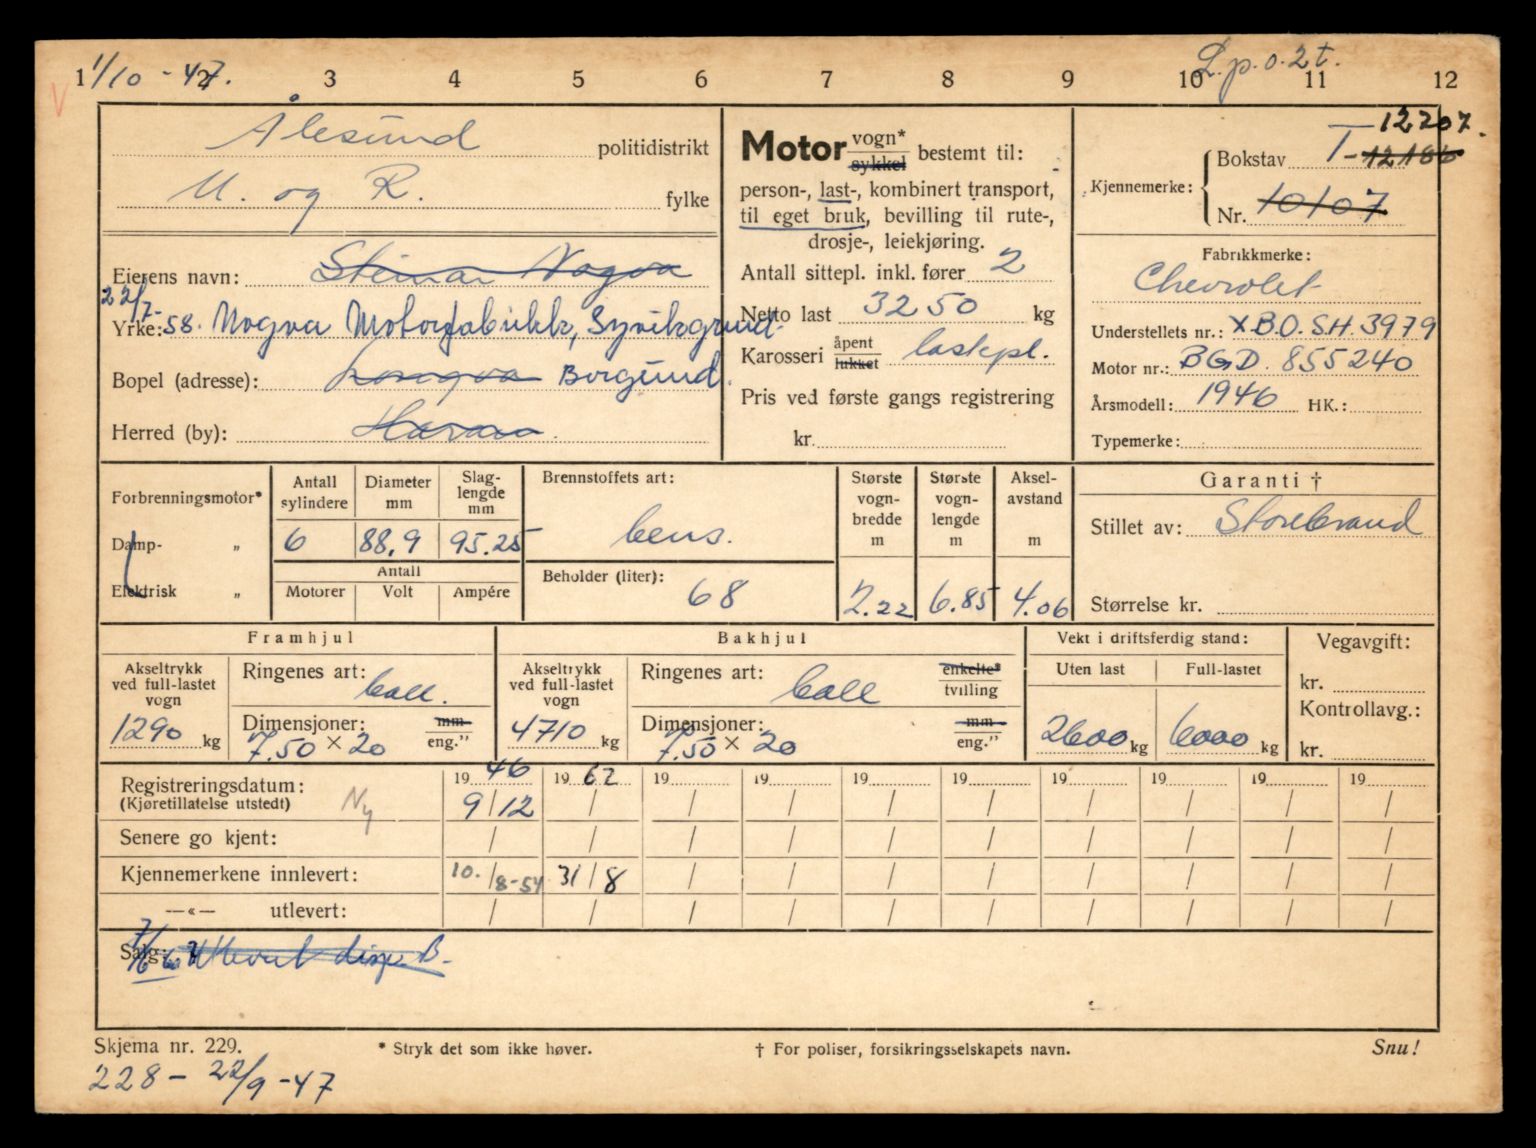 1/10 - 47. L.p.o.2t.
1 2 3 4 5 6 7 8 9 10 11 12
V
Ålesund politidistrikt
M. og R. fylke
Eierens navn: Steinar Nogva
22/7-
Yrke: 58. Nogva Motorfabrikk, Syvikgrend.
Bopel (adresse): Longva Borgund.
Herred (by): Haram.
Motor vogn* sykkel bestemt til:
person-, last-, kombinert transport,
til eget bruk, bevilling til rute-,
drosje-, leiekjøring.
Antall sittepl. inkl. fører 2
Netto last 3250 kg
Karosseri åpent lukket lastepl.
Pris ved første gangs registrering
kr.
12207.
Kjennemerke: Bokstav T-12186
Nr. 10107
Fabrikkmerke:
Chevrolet
Understellets nr.: X.B.O.S.H.3979
Motor nr.: BGD. 855240
Årsmodell: 1946 HK.:
Typemerke:
Forbrenningsmotor*
Damp- „
Elektrisk „
Antall sylindere Diameter mm Slaglengde mm
6 88,9 95.25
Antall
Motorer Volt Ampére
Brennstoffets art:
bens.
Beholder (liter):
68
Største vognbredde m Største vognlengde m Akselavstand m
2.22 6.85 4.06
Garanti †
Stillet av: Storebrand
Størrelse kr.
Framhjul
Akseltrykk ved full-lastet vogn
1290 kg
Ringenes art: ball.
Dimensjoner: mm eng.”
7.50 × 20
Bakhjul
Akseltrykk ved full-lastet vogn
4710 kg
Ringenes art: ball enkelte* tvilling
Dimensjoner: mm eng.”
7.50 × 20
Vekt i driftsferdig stand:
Uten last Full-lastet
2600 kg 6000 kg
Vegavgift:
kr.
Kontrollavg.:
kr.
Registreringsdatum: 19 46 19 62 19 19 19 19 19 19 19 19
(Kjøretillatelse utstedt) Ny 9/12 / / / / / / / / /
Senere go kjent: / / / / / / / / / /
Kjennemerkene innlevert: 10./8-54 31/8 / / / / / / / /
—«— utlevert: / / / / / / / / / /
Salg: 7/6-60 Utlevert disp. B.
Skjema nr. 229. * Stryk det som ikke høver. † For poliser, forsikringsselskapets navn. Snu!
228 - 22/9 -47